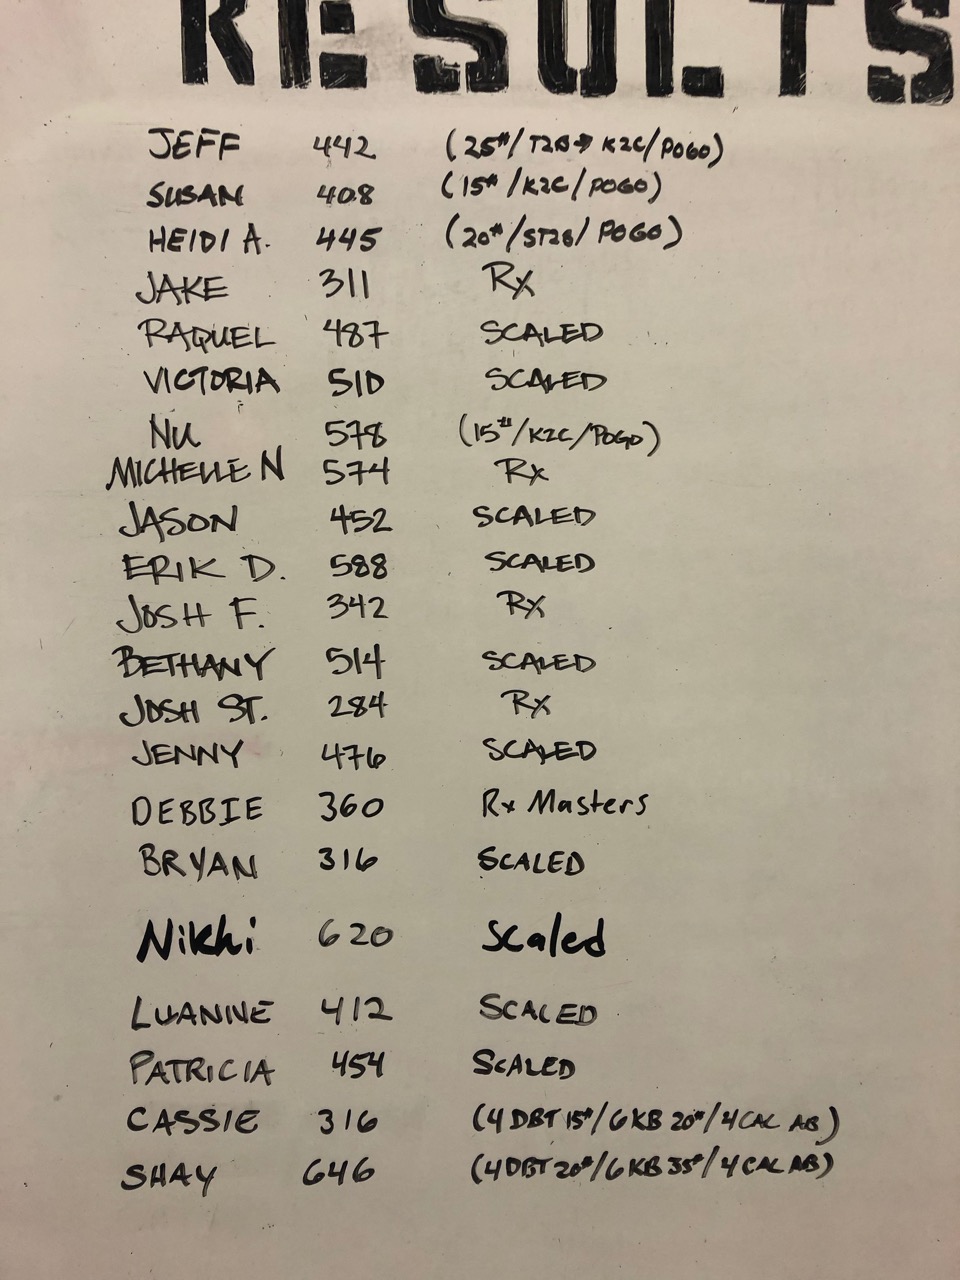 RESULTS
JEFF 442 (25#/T2B→K2C/POGO)
SUSAN 408 (15#/K2C/POGO)
HEIDI A. 445 (20#/ST2B/POGO)
JAKE 311 Rx
RAQUEL 487 SCALED
VICTORIA 510 SCALED
NU 578 (15#/K2C/POGO)
MICHELLE N 574 Rx
JASON 452 SCALED
ERIK D. 588 SCALED
JOSH F. 342 Rx
BETHANY 514 SCALED
JOSH ST. 284 Rx
JENNY 476 SCALED
DEBBIE 360 Rx Masters
BRYAN 316 SCALED
Nikki 620 Scaled
LUANNE 412 SCALED
PATRICIA 454 SCALED
CASSIE 316 (4 DBT 15#/6 KB 20#/4 CAL AB)
SHAY 646 (4 DBT 20#/6 KB 35#/4 CAL AB)